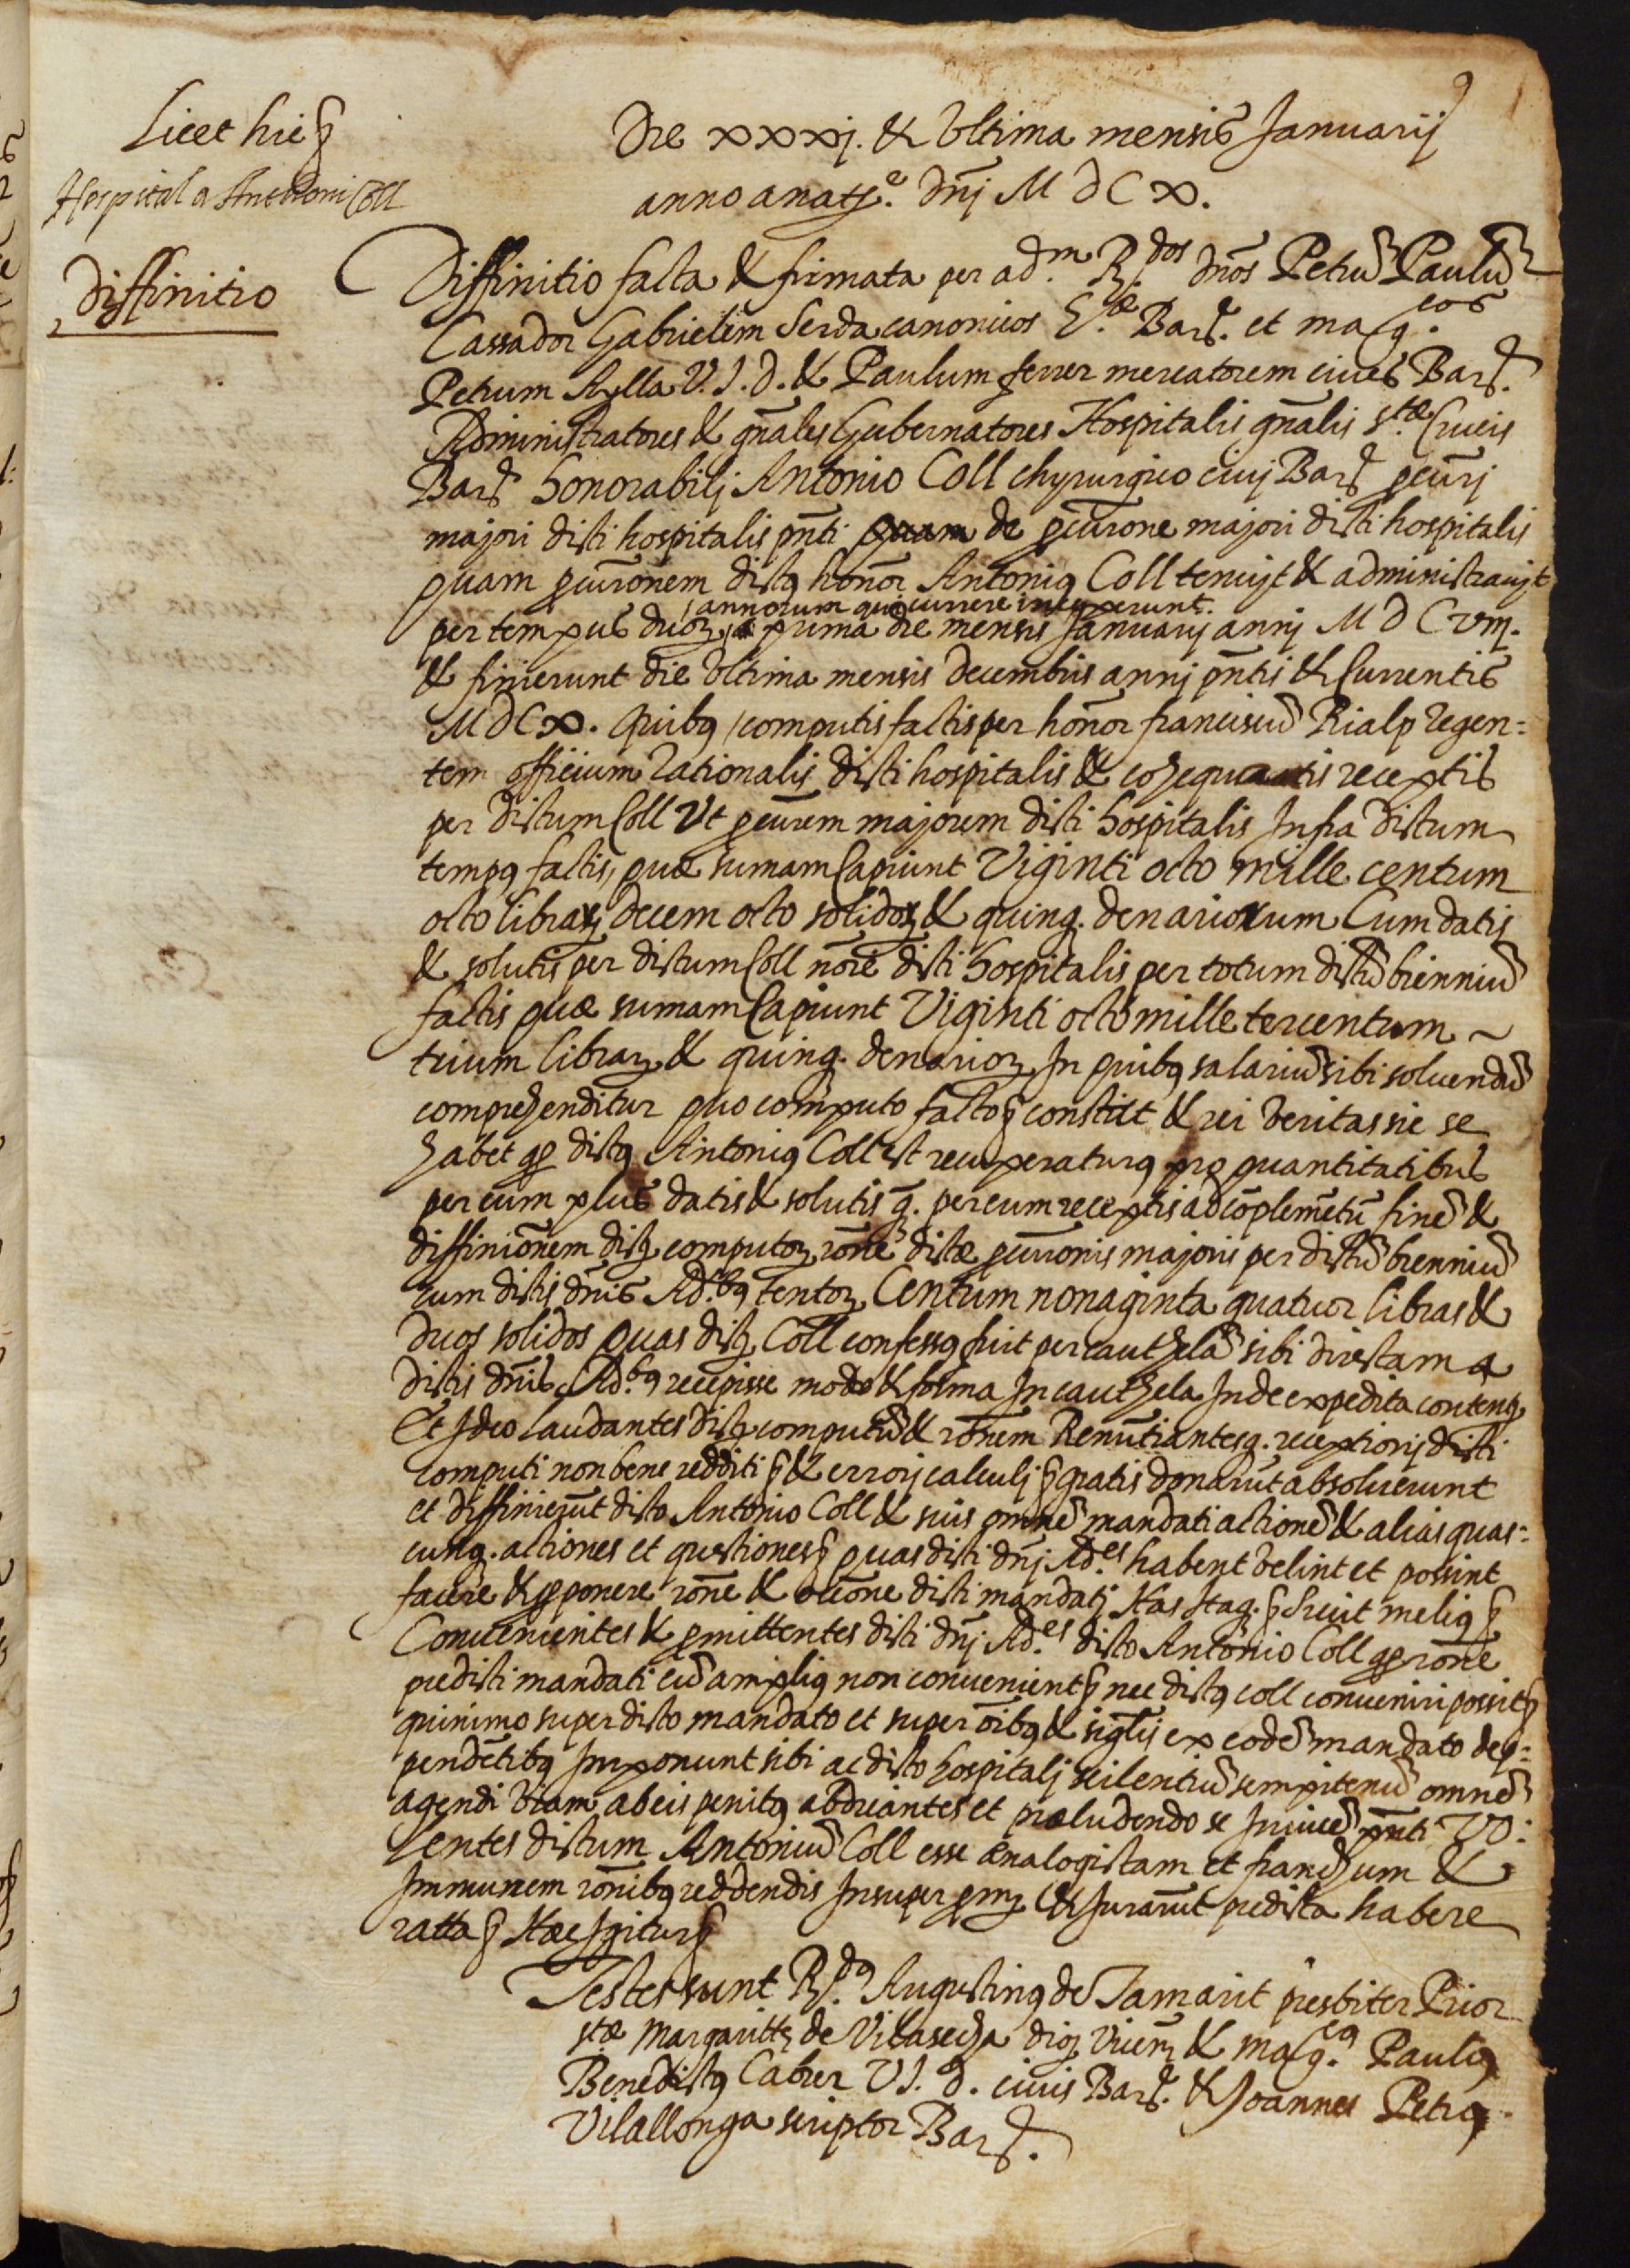 9
Licet hic
Hospital a Anthoni Coll
Diffinitio
Die xxxj. & Vltima mensis Januarij
anno a natte. dnj M D C X.
Diffinitio facta & firmata per adm. Rdos dños Petrũ Paulũ
Cassador Gabrielem Serda canonicos Bar. et magcos
Petrum Aylla V. J. D. & Paulum ferrer mercatorem ciues Bar.
Administratores & gñales Gubernatores Hospitalis gñalis stæ Crucis
Bar honorabilj Antonio Coll chyrurgico ciuj Bar pcurj
majori dicti hospitalis pñti de pcurone majori dicti hospitalis
quam pcuronem dictq honor Antoniq Coll tenuyt & administrauyt
annorum qui currere inceperunt.
per tempus duoꝝ a prima die mensis Januarij annj M D C viiij.
& finierunt die vltima mensis decembris annj pñtis & Currentis
M D C X. quibq computis factis per honor franciscũ Rialp Regen=
tem officium Rationalis dicti hospitalis & receptis
per dictum Coll Vt pcurem majorem dicti hospitalis Infra dictum
tempq factis, quæ sumam Capiunt Viginti octo mille centum
octo libraꝝ decem octo solidoꝝ & quinq. denariorum Cum datis
& solutis per dictum Coll nõre dicti hospitalis per totum dictũ bienniũ
factis quæ sumam Capiunt Viginti octo mille tercentum ~
trium libraꝝ & quinq. denarioꝝ In quibq salariũ sibi soluendũ
comprehenditur quo computo facto constitit & rei veritas sic se
habet qp dictq Antoniq Coll est recuperaturq pro quantitatibus
per eum plus datis & solutis q. per eum receptis ad cõplemẽtũ finẽ &
diffiniõnem dictꝝ computoꝝ rõne dictæ pcuronis majoris per dictũ bienniũ
cum dictis dñis Ad.bq tentoꝝ Centum nonaginta quatuor libras &
duos solidos quas dictq Coll confessq fuit per cauthelã sibi directam a
dictis dñis Ad.bq recepisse modo & forma In cauthela Inde expedita contentꝭ
Et Ideo Laudantes dictꝝ computũ & rõnem Renuntiantesq. exceptionj dicti
computi non bene redditi & errorj calculj gratis donarũt absoluerunt
et diffinierũt dicto Antonio Coll & suis omnẽ mandati actionẽ & alias quas=
cunq. actiones et questiones quas dicti dñj Ad.es habent velint et possint
facere & pponere rõne & occõne dicti mandatj Has Itaq. Sicut meliq
Conuenientes & pmittentes dicti dñj Ad.es dicto Antonio Coll qp rõne
predicti mandati eũ ampliq non conuenient nec dictq coll conueniri possit
quinimo super dicto mandato et super õibq & siglis ex eodẽ mandato dep=
pendẽtibq Imponunt sibi ac dicto hospitalj scilentiũ sempiternũ omnẽ
agendi viam ab eis penitq abdicantes et præludendo se Inuicẽ pñti Vo=
lentes dictum Antoniũ Coll esse analogistam et franchum &
Immunem rõnibq reddendis Insuper pmꝭ & Jurarũt predicta habere
ratta Hæc Igitur
Testes sunt Rdq Augustinq de Tamarit presbiter Prior
stæ Margarittæ de Vilasecha diocꝭ Vicenꝭ & magcq Pauliq
Benedictq Cabrer V J. d. ciuis Bar. & Joannes Petrq
Vilallonga scriptor Bar.